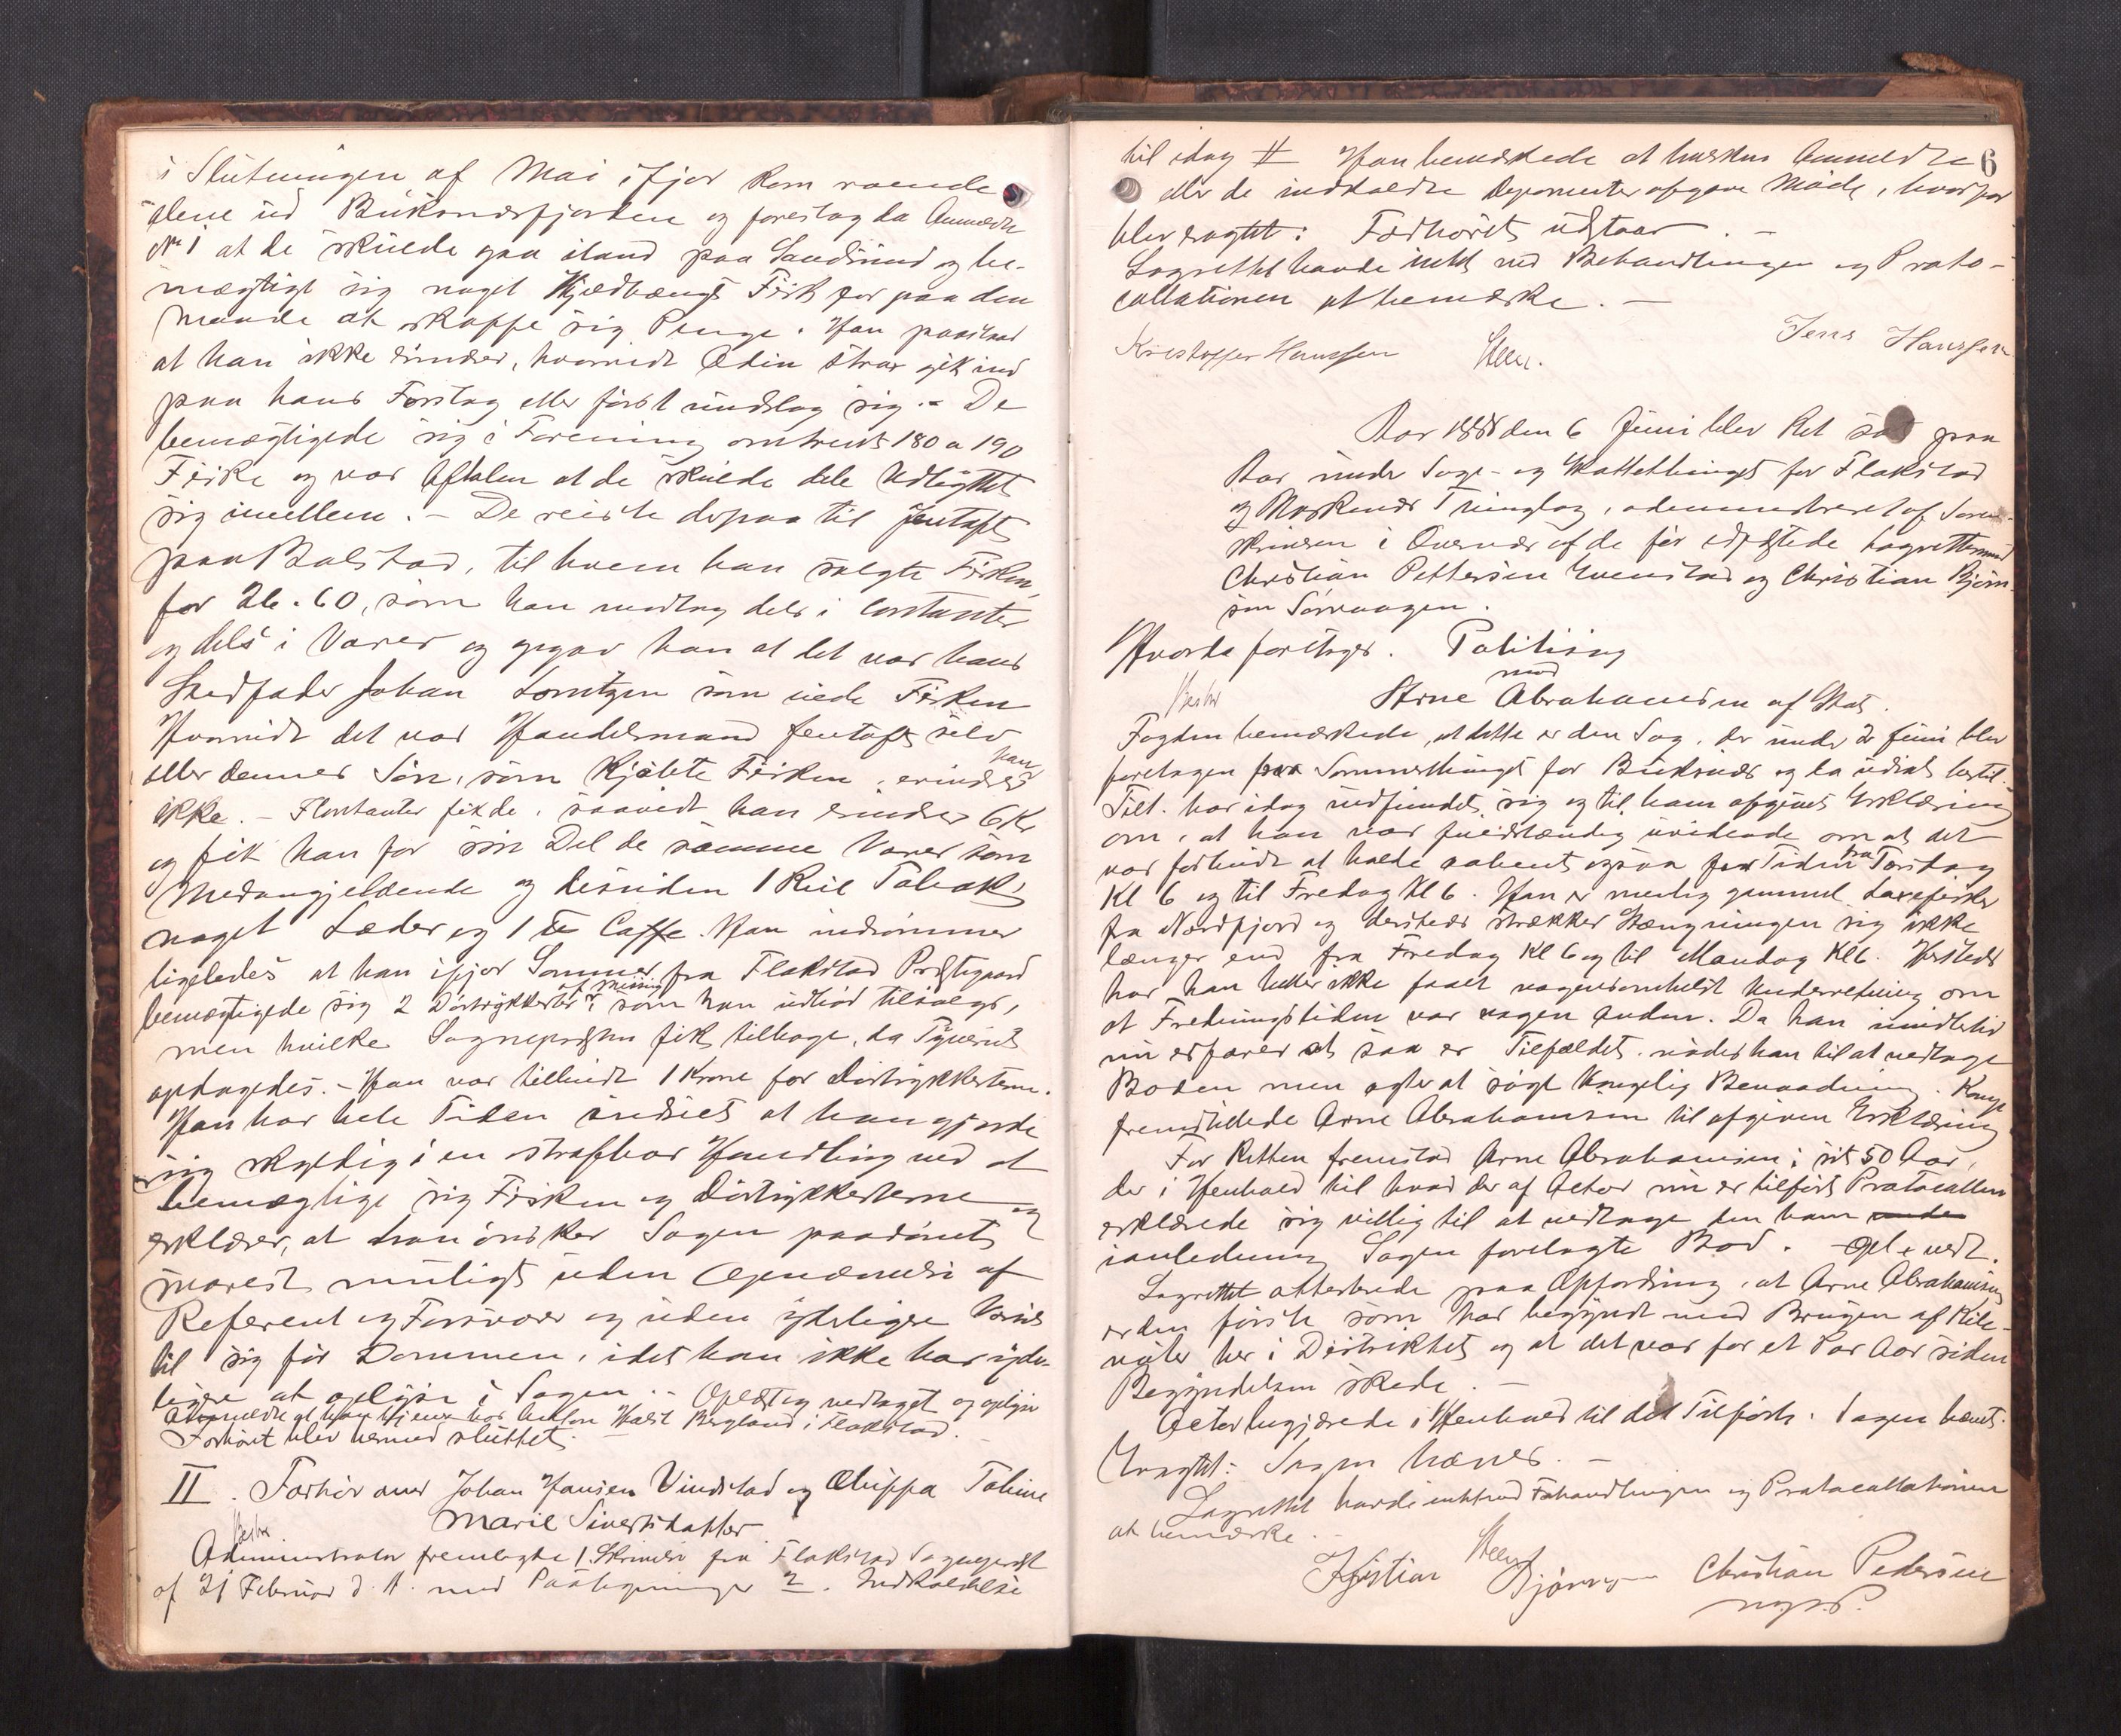 i Slutningen af Mai ifjor kom roende
alene ud Buksnæsfjorden og foreslog da Anmeldte
No 1 at de skulde gaa iland paa Sandsund og be-
mægtige sig noget Hjedhængt Fisk for paa den
Maade at skaffe sig Penge. Han paastaar
at han ikke erindrer, hvorvidt Edin strax gik ind
paa hans Forslag eller først undslog sig. - De
bemægtigede sig i Forening omtrent 180 a 190
Fiske og var Aftalen at de skulde dele Udbyttet
sig imellem. - De reiste derpaa til Jentoft
paa Balstad, til hvem han solgte Fisken
for 26.60, som han modtog dels i Contanter
og dels i Varer og opgav han at det var hans
Stedfader Johan Lorntzen som eiede Fisken
Hvorvidt det var Handelsmand Jentoft selv
eller dennes Søn, som kjøbte Fisken, erindrer han
ikke. - Contanter fik de, saavidt han erindrer 6 Kr
og fik han for sin Del de samme Varer som
Medangjældende og desuden 1 Rul Tobak,
noget Læder og 1 ℔ Caffe. Han indrømmer
ligeledes at han ifjor Sommer fra Flakstad Præstegaard
bemægtigede sig 2 Dørtrykkerter af Messing, som han udbød tilsalgs,
men hvilke Sognepresten fik tilbage, da Tyveriet
opdagedes. - Han var tilbudt 1 Krone for Dørtrykkerterne.
Han har hele Tiden indseet at han gjorde
sig skyldig i en strafbar Handling ved at
bemægtige sig Fisken og Dørtrykkerterne og
erklærer, at han ønsker Sagen paadømt
snarest muligt uden Opnævnelse af
Referent og Forsvarer og uden yderligere Varsel
til sig før Dommen, idet han ikke har yder-
ligere at oplyse i Sagen. - Oplæst og vedtaget og oplyse
Anmeldte at han tjener hos Anton Hals Bergland i Flakstad. -
Forhøret blev hermed sluttet.
II. Forhør over Johan Hansen Vindstad og Chippa Tobine
Marie Sivertsdatter
Administrator fremlagde 1. Skrivelse fra Flakstad Sognepræst
af 21 Februar d. A. med Paategninger 2. Indkaldelse
6
til idag # Han bemærkede at hverken Anmeldte
eller de indkaldte Deponenter afgave Møde, hvorfor
blev eragtet: Forhøret udstaar. -
Lagrettet havde intet ved Behandlingen og Proto-
collationen at bemærke. -
Kristoffer Hanssen Steen. Jens Hanssen
Aar 1888 den 6 Juni blev Ret sat paa
Aar under Sage- og Skattethinget for Flakstad
og Moskenæs Thinglag, administreret af Soren-
skriveren i Overvær af de før edfæstede Lagrettesmænd
Christian Pettersen Evenstad og Christian Bjørn-
sen Sørvaagen.
Hvorda foretoges. Politisag
mod
Arne Abrahamsen af Stat.
Fogden bemærkede, at dette er den Sag, der under 2 Juni blev
foretagen paa Sommerthinget for Buksnæs og da udsat hertil.
Tilt. har idag indfundet sig og til ham afgivet Erklæring
om, at han var fuldstændig uvidende om at det
var forbudt at holde aabent ogsaa for Tiden fra Torsdag
Kl 6 og til Fredag Kl 6. Han er nemlig gammel Laxefisker
fra Nordfjord og dersteds strækker Stængningen sig ikke
længer end fra Fredag Kl 6 og til Mandag Kl 6. Hersteds
har han heller ikke faaet nogensomhelst Underretning om
at Fredningstiden var nogen anden. Da han imidlertid
nu erfarer at saa er Tilfældet, nødes han til at vedtage
Boden men agter at søge Kongelig Benaadning.
fremstillede Arne Abrahamsen til afgiven Erklæring
For Retten fremstod Arne Abrahamsen i sit 50 Aar,
der i Henhold til hvad der af Actor nu er tilført Protocollen
erklærede sig villig til at vedtage den ham
ianledning Sagen forelagte Bod. Opl & vedt.
Lagrettet attesterede paa Opfordring, at Arne Abrahamsen
er den første som har begyndt med Brugen af Kile-
nøter her i Distriktet og at det var for et Par Aar siden
Begyndelsen skede. -
Actor begjærede i Henhold til det Tilførte. Sagen hævet.
Eragtet: Sagen hæves. -
Lagrettet havde intet ved Behandlingen og Protocollationen
at bemærke. -
Steen
Kristian Bjørnsen Christian Pedersen
m.p.P.